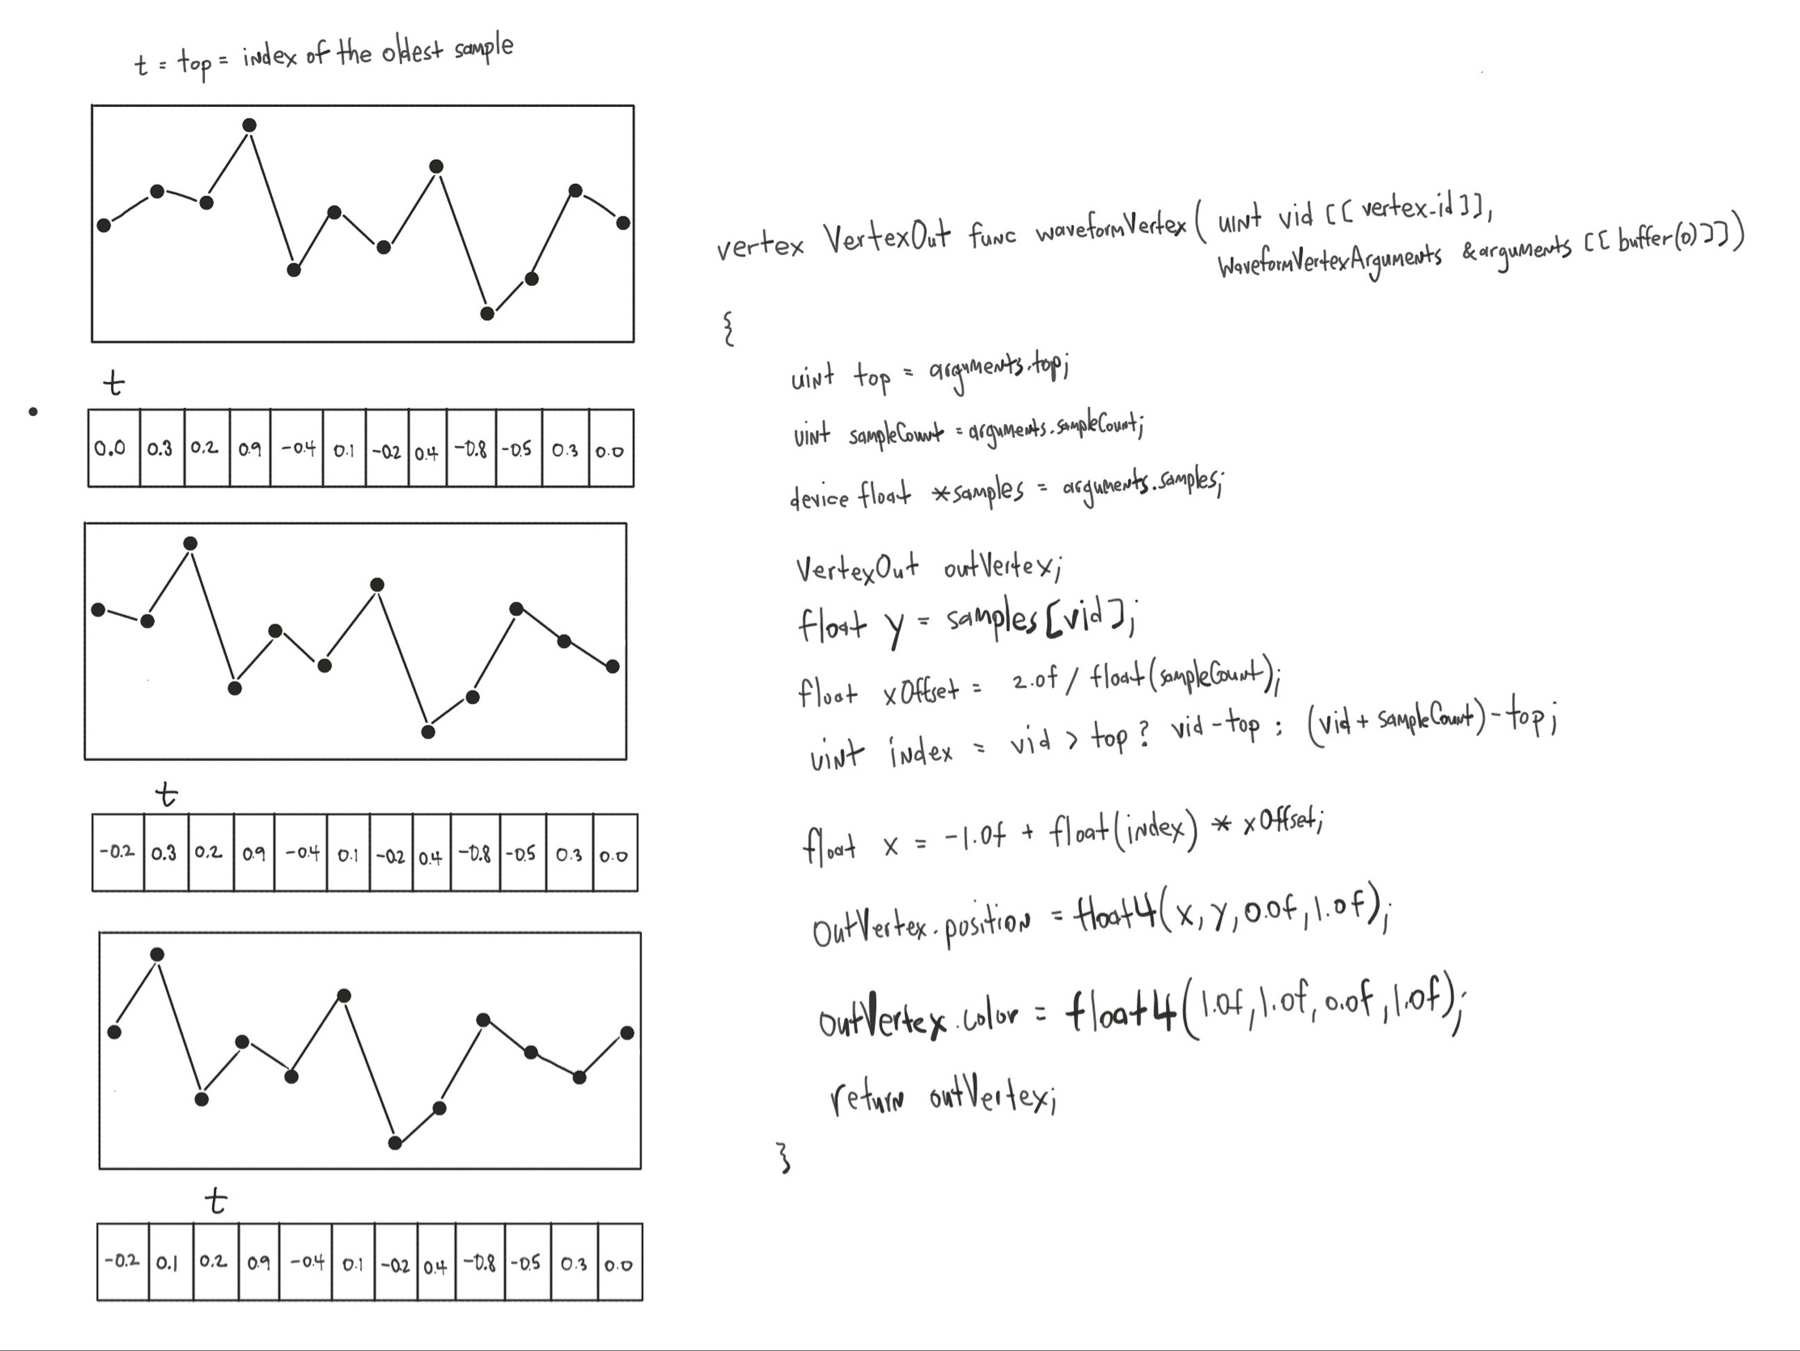 t = top = index of the oldest sample
t
0.0 0.3 0.2 0.9 -0.4 0.1 -0.2 0.4 -0.8 -0.5 0.3 0.0
t
-0.2 0.3 0.2 0.9 -0.4 0.1 -0.2 0.4 -0.8 -0.5 0.3 0.0
t
-0.2 0.1 0.2 0.9 -0.4 0.1 -0.2 0.4 -0.8 -0.5 0.3 0.0
vertex VertexOut func waveformVertex( uint vid [[vertex_id]],
WaveformVertexArguments &arguments [[buffer(0)]])
{
uint top = arguments.top;
uint sampleCount = arguments.sampleCount;
device float *samples = arguments.samples;
VertexOut outVertex;
float y = samples[vid];
float xOffset = 2.0f / float(sampleCount);
uint index = vid > top? vid-top : (vid + sampleCount) - top;
float x = -1.0f + float(index) * xOffset;
OutVertex.position = float4(x, y, 0.0f, 1.0f);
outVertex.color = float4(1.0f, 1.0f, 0.0f, 1.0f);
return outVertex;
}